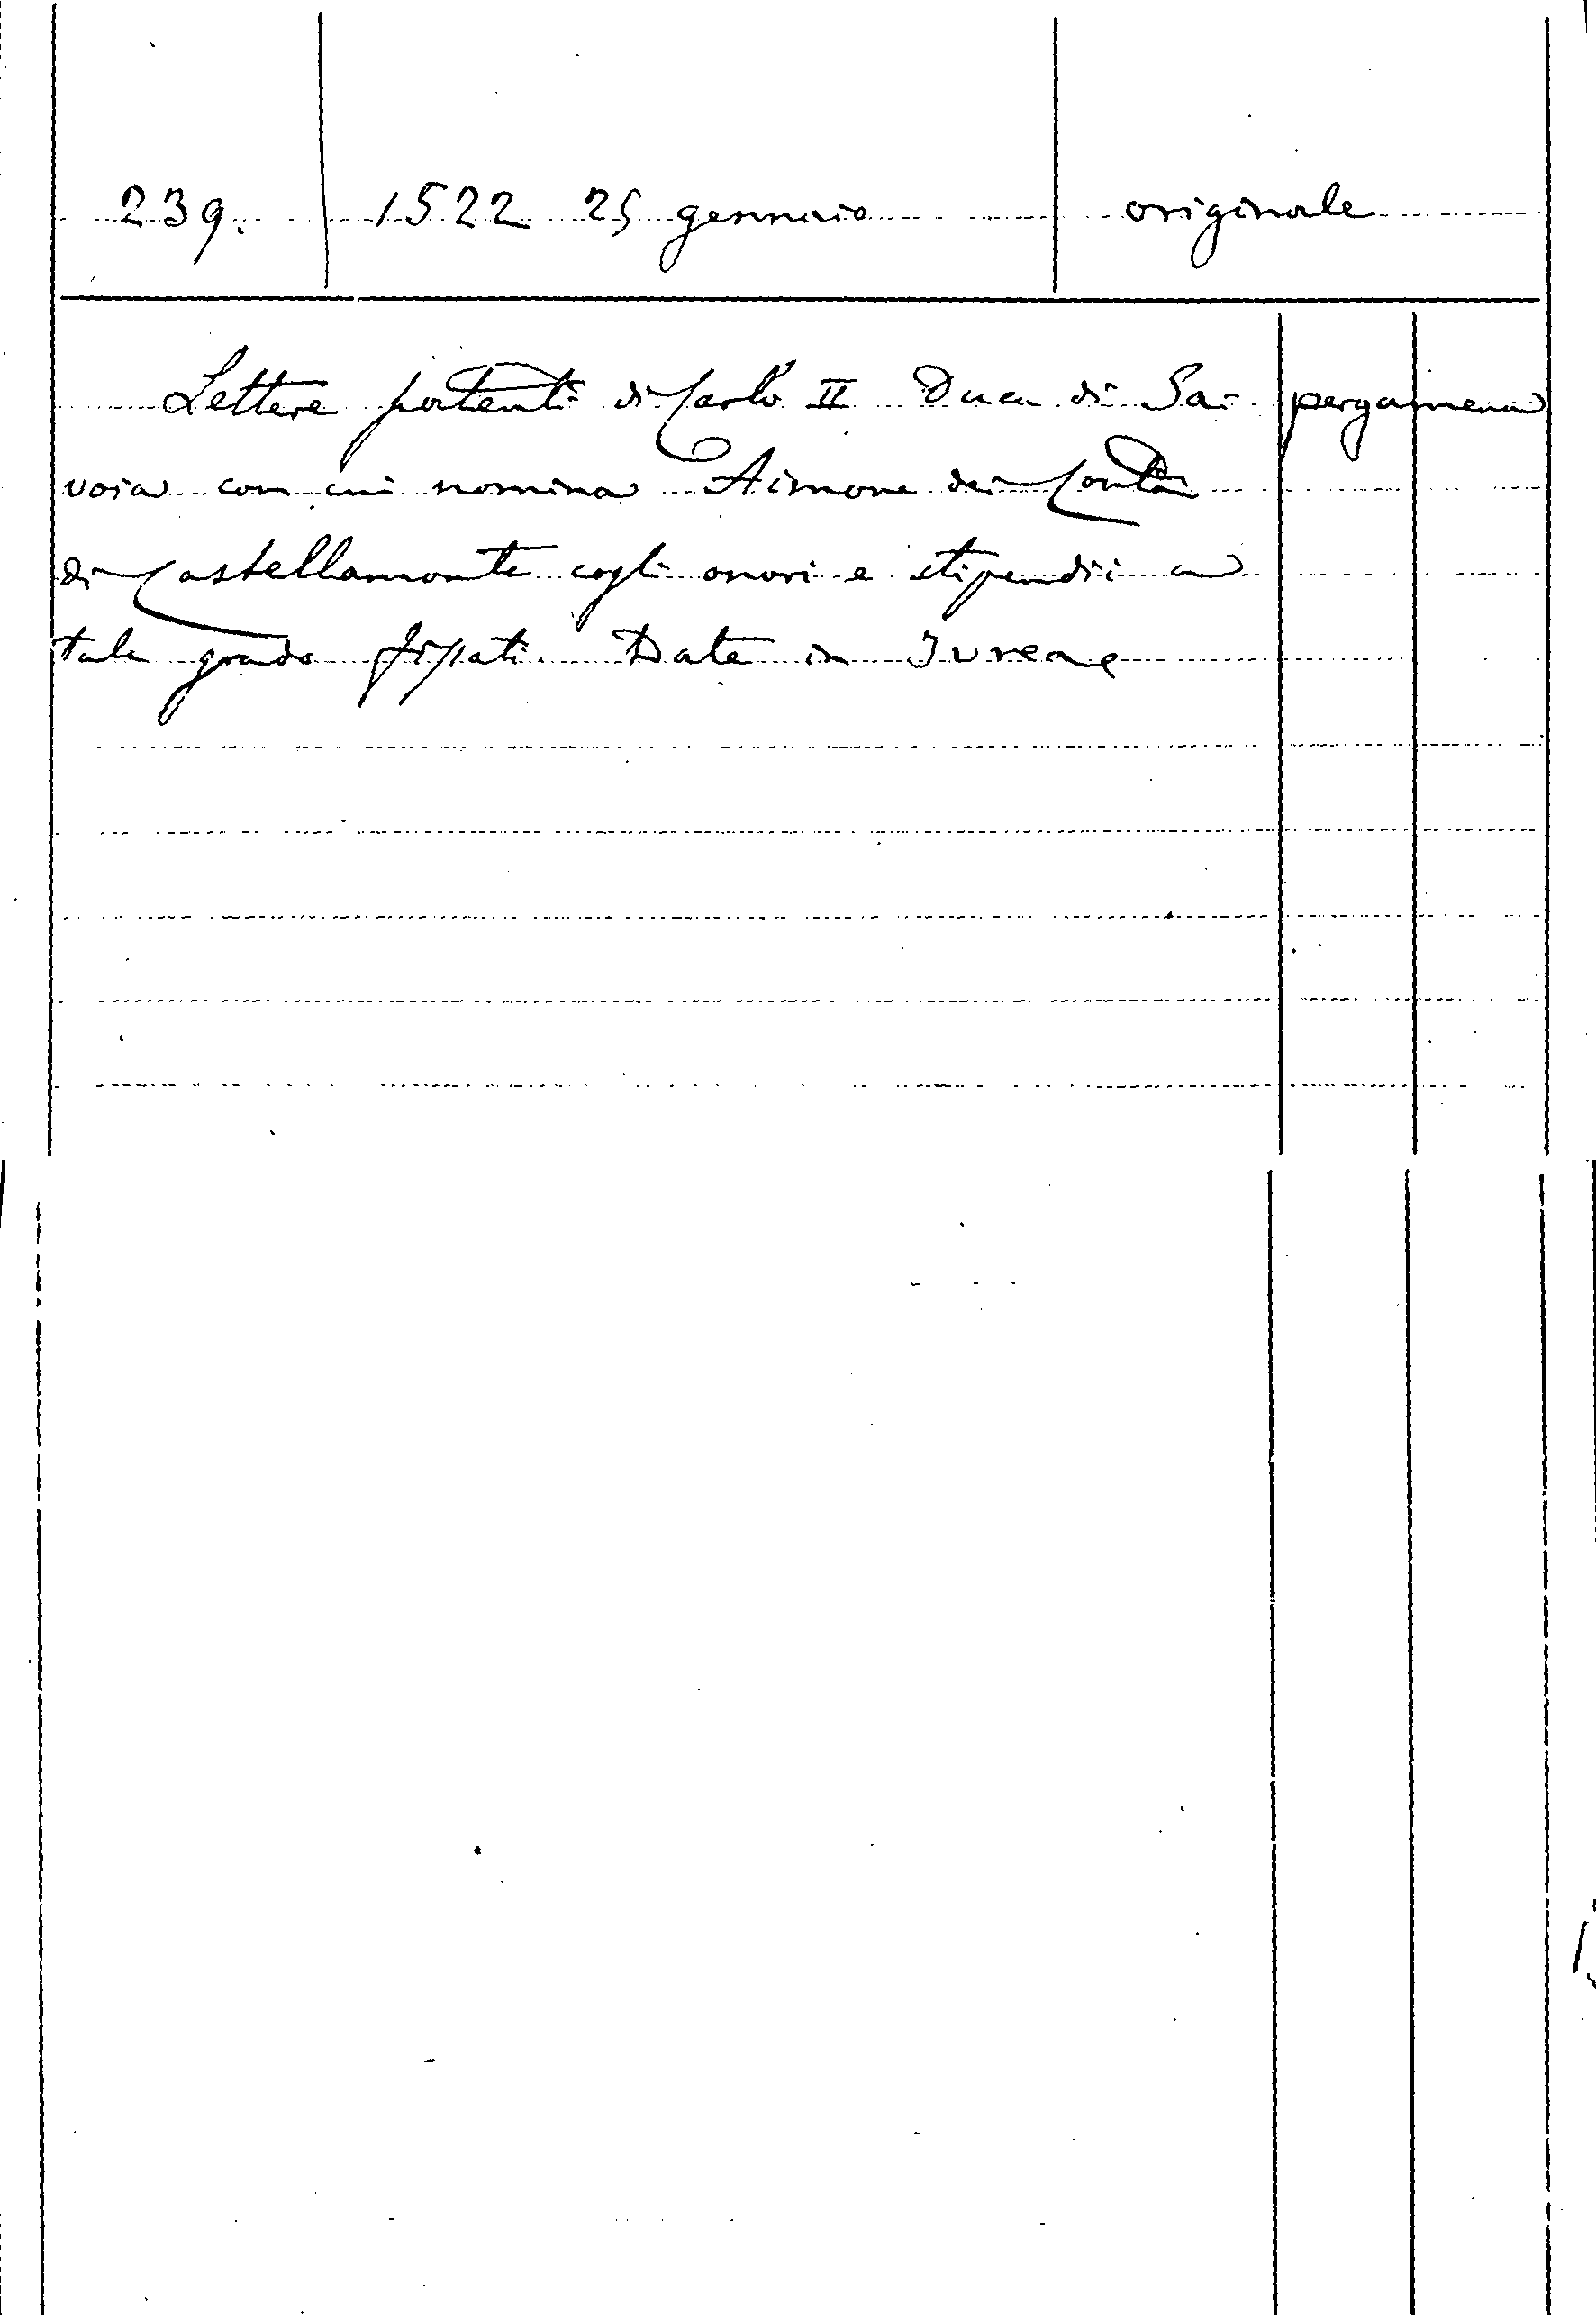 239. 1522 25 gennaio originale
Lettere patenti di Carlo II Duca di Sa- pergamena
voia con cui nomina Aimone dei Conti
di Castellamonte cogli onori e stipendii a
tale grado fissati. Date in Ivrea